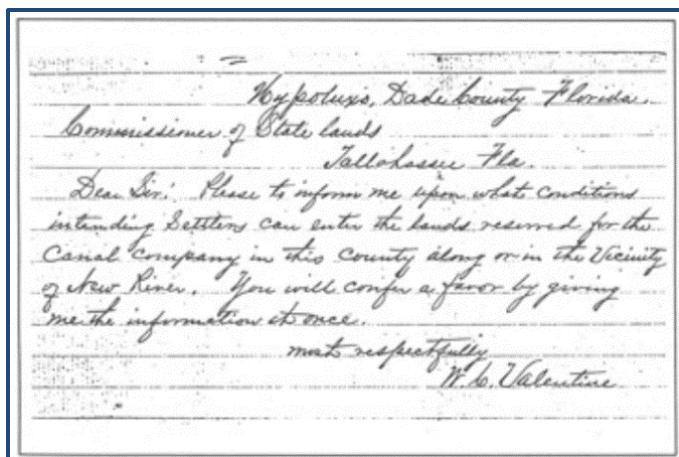 Hypoluxo, Dade County Florida.
Commissioner of State lands
Tallahassee Fla.
Dear Sir: Please to inform me upon what conditions
intending Settlers can enter the lands reserved for the
Canal company in this county along or in the Vicinity
of New River. You will confer a favor by giving
me the information at once.
most respectfully
W. C. Valentine